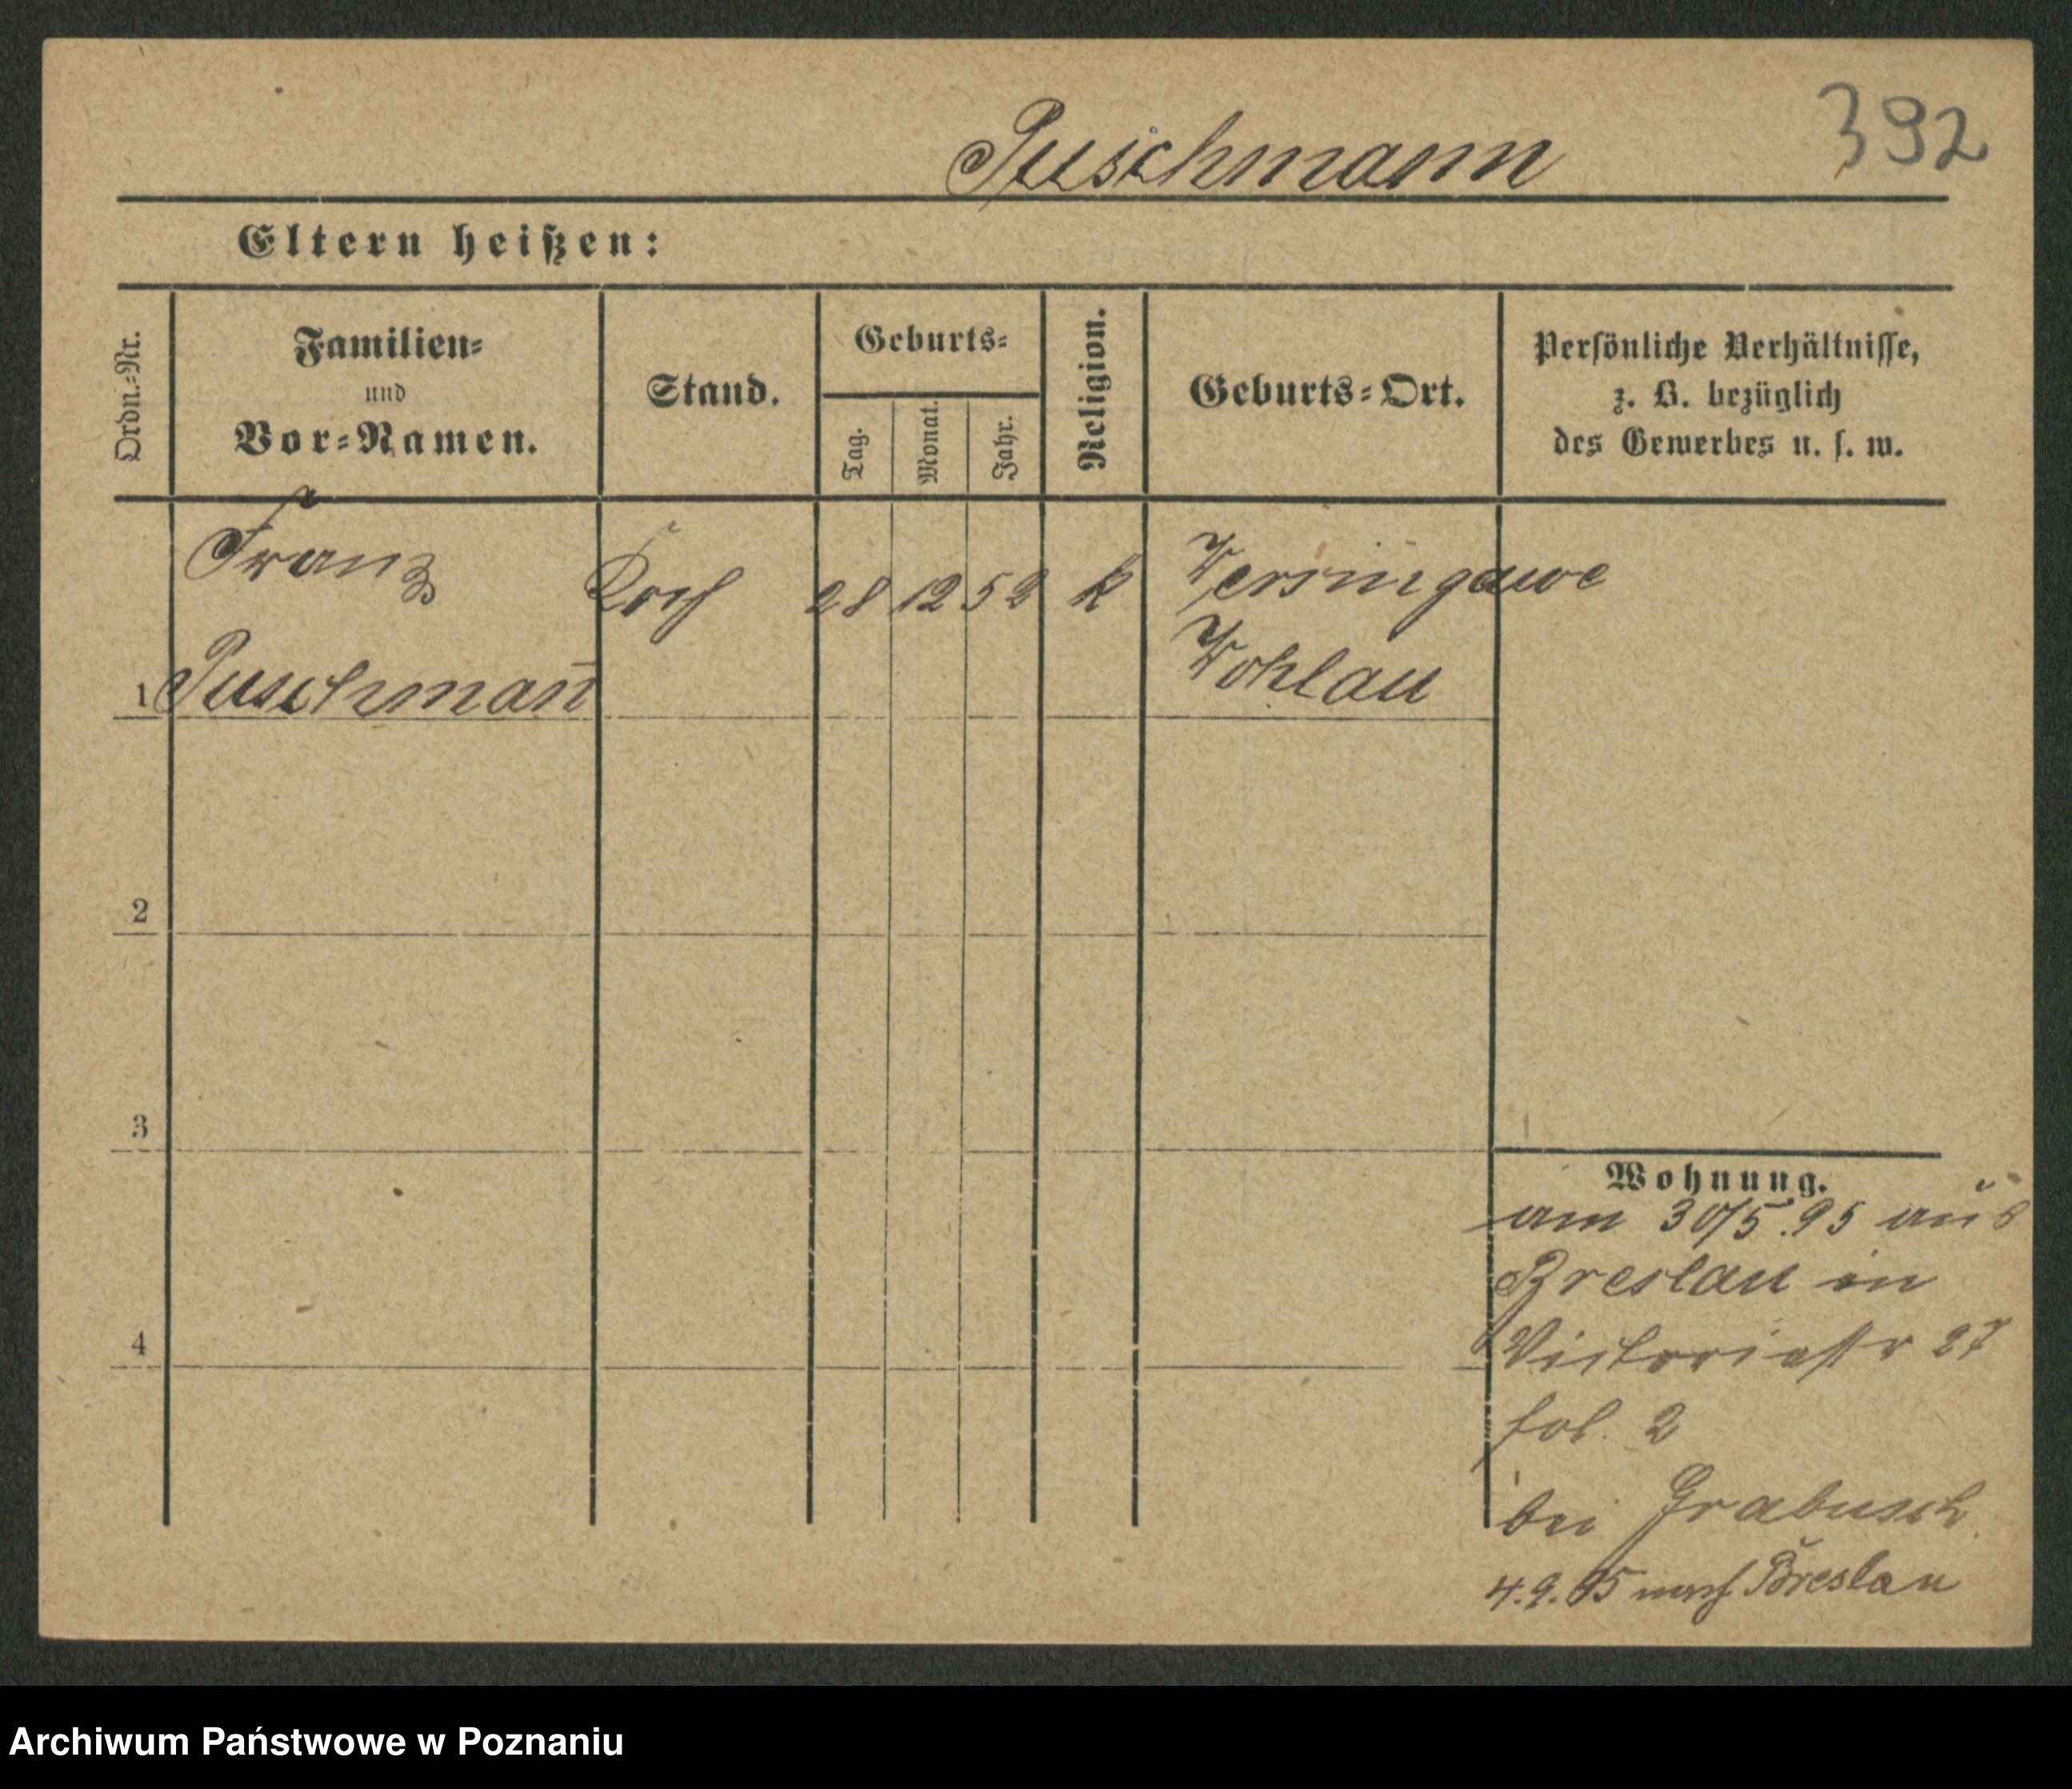 Puschmann
392
Eltern heißen:
Ordn.-Nr.
Familien-
und
Vor-Namen.
Stand.
Geburts-
Tag.
Monat.
Jahr.
Religion.
Geburts-Ort.
Persönliche Verhältnisse,
z. B. bezüglich
des Gewerbes u. s. w.
Franz
Koch 28 12 52 k
Wersingawe
Wohlau
1 Puschman̄
2
3
4
Wohnung.
am 30/5.95 aus
Breslau in
Victoriastr 27
fol. 2
bei Grabusch
4.9.95 nach Breslau
Archiwum Państwowe w Poznaniu